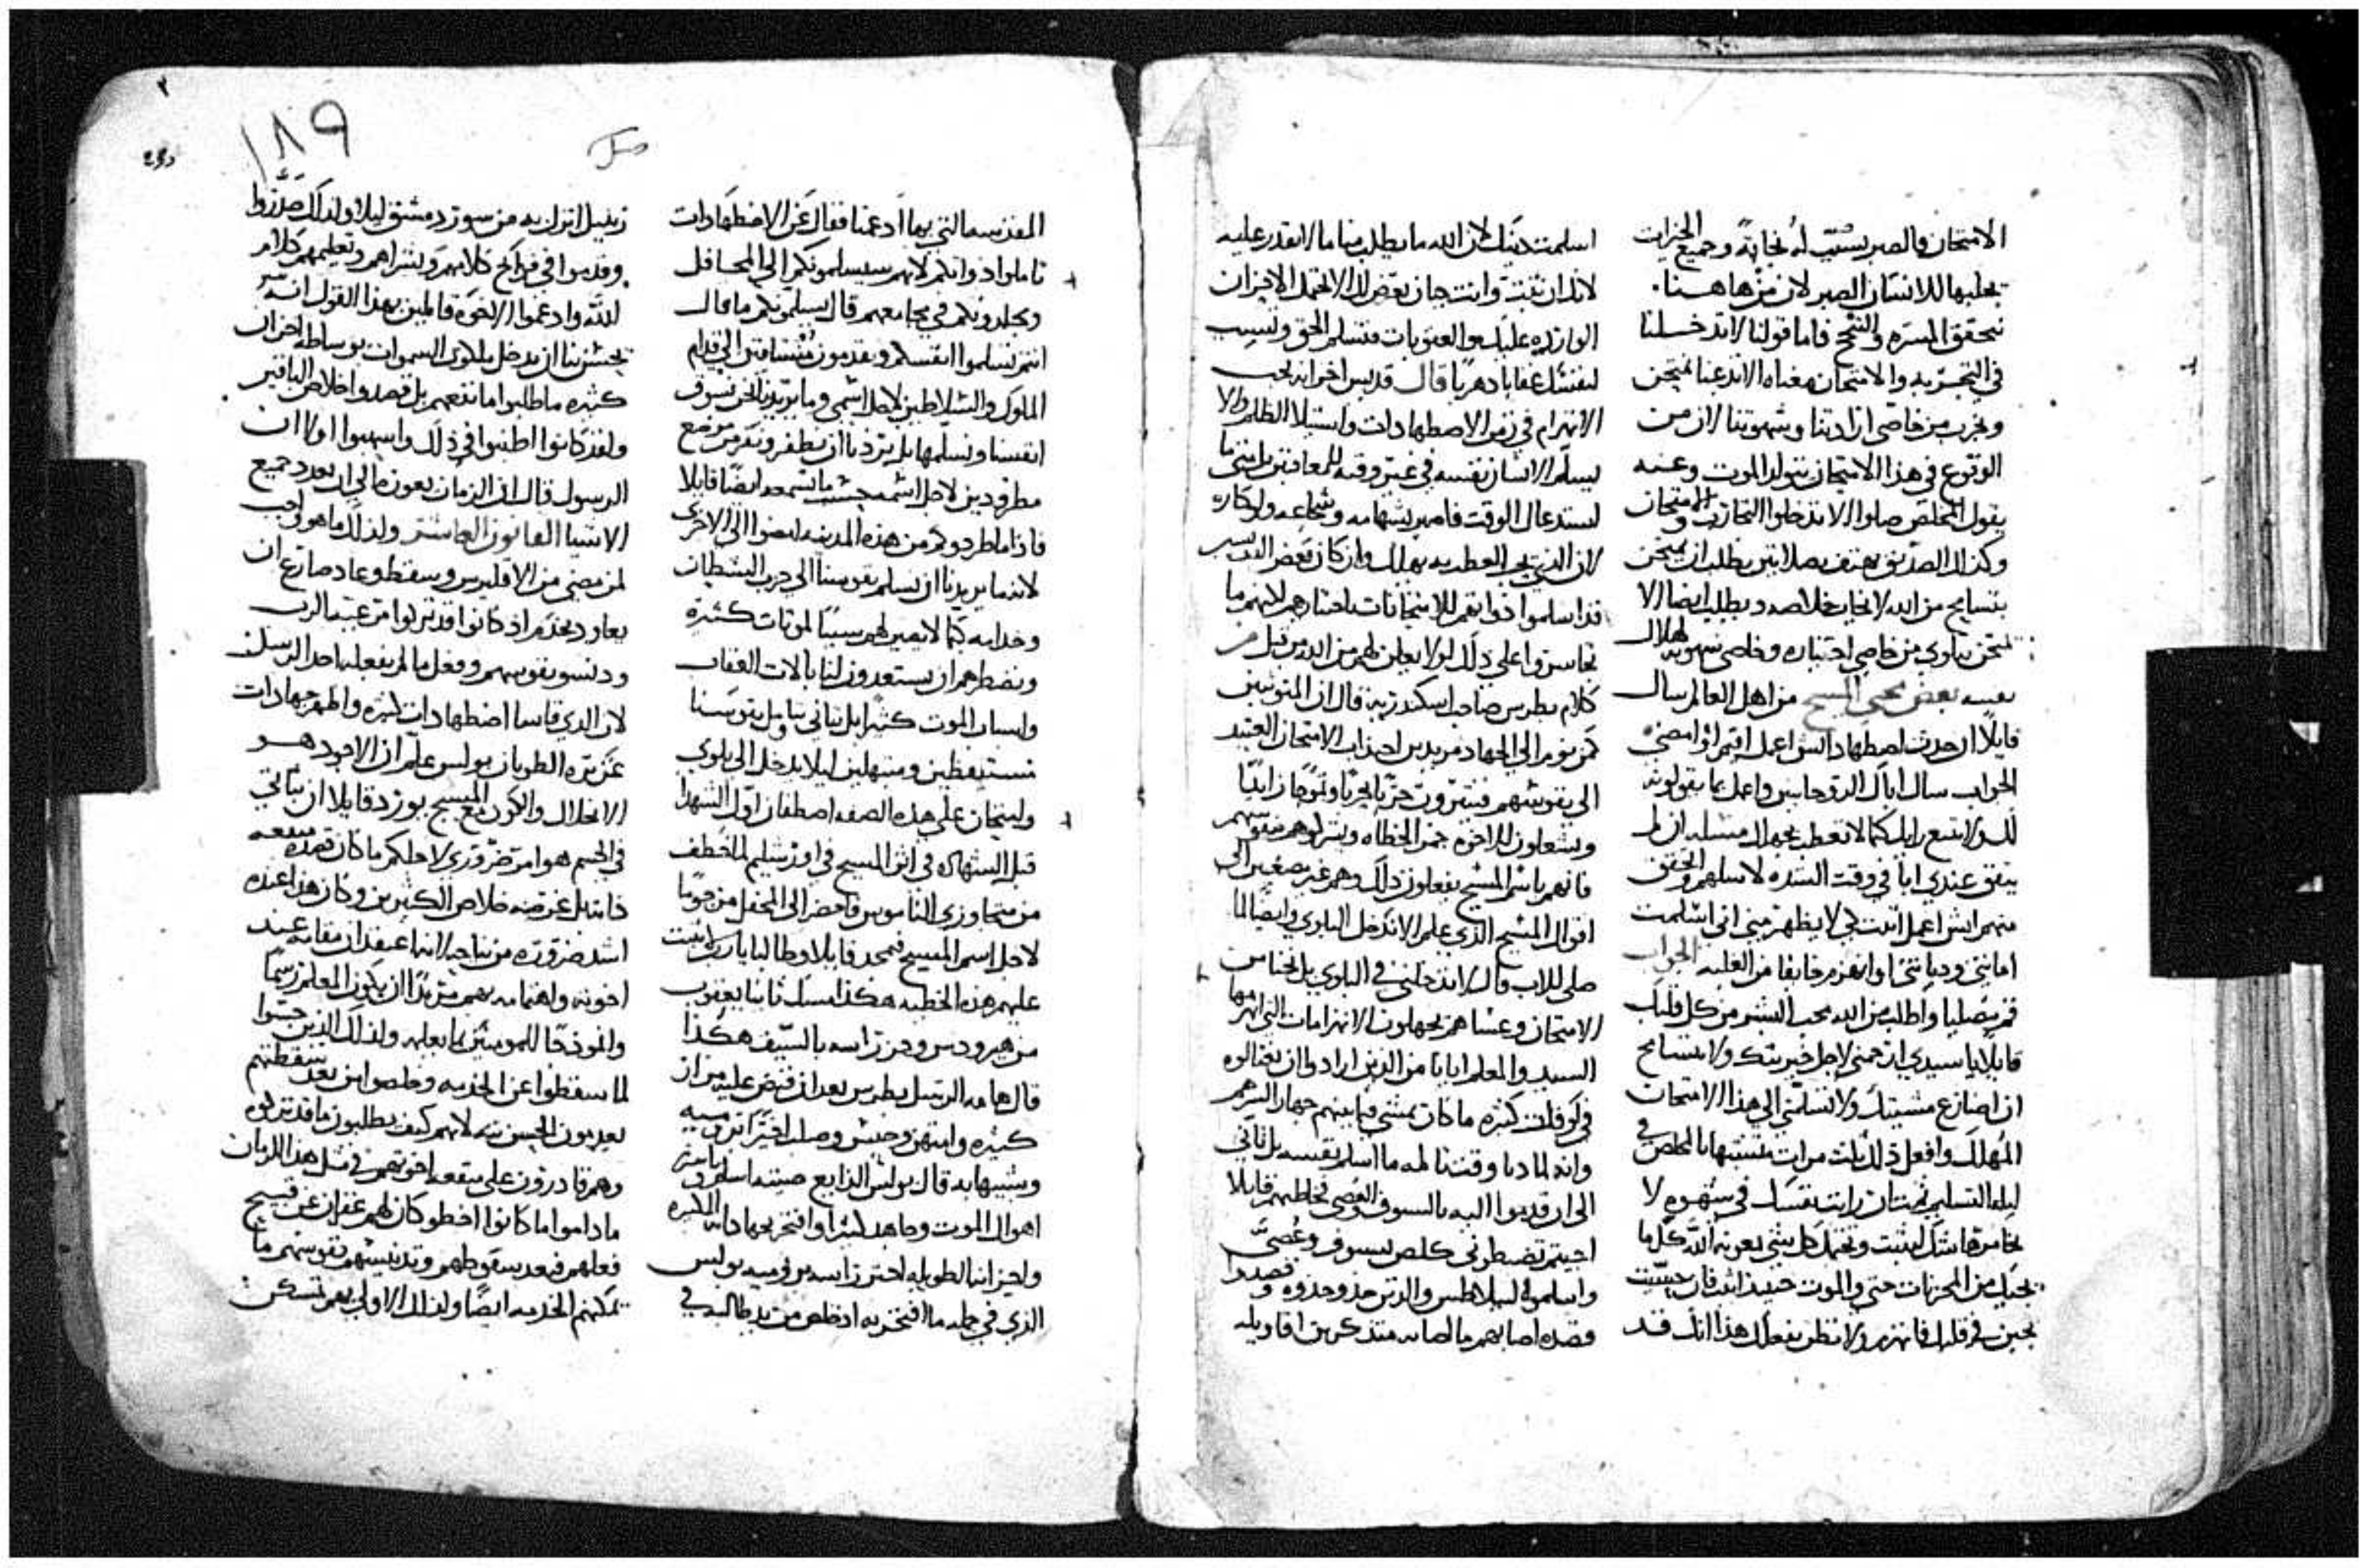 الامتحان فالصبر يسبب له نجاة وجميع الخيرات
يجلبها للانسان الصبر لان من هاهنا
تتحقق المسره والنجح فاما قولنا لا تدخلنا
في التجربه والامتحان معناه الا تدعنا نمتحن
ونجرب من خاصي ارادتنا وشهوتنا لان من
الوقوع في هذا الامتحان يتولد الموت وعنه
يقول المخلص صلوا لا تدخلوا التجارب والامتحان
وكذلك الصديق يهتف بصلاتين يطلب ان يمتحن
بتسامح من الله لايجاب خلاصه ويطلب ايضا الا
يمتحن ببلوي من خاصي اختياره وخاصي شهوته لهلاك
نفسه بعض محبي المسيح من اهل العالم سال
قايلا ان حدث اضطهاد ايش اعمل اقيم او امضي
الجواب سال اباك الروحانيين واعمل بما يقولونه
لك ولا تتبع رايك كيما لا تعطب بجهلك مسله ان لم
يتفق عندي ابا في وقت الشده لاسلهم واتحقق
منهم ايش اعمل اثبت لكي لا يظهر مني اني اسلمت
امانتي وديانتي او انهزم خايفا من الغلبه الجواب
قم بصليا واطلب من الله محب البشر من كل قلبك
قايلا يا سيدي ارحمني لاجل خيريتك ولا تتسامح
ان اصارع مشيتك ولا تسلمني الي هذا الامتحان
المهلك وافعل ذلك ثلث مرات متشبها بالمخلص في
ليله التسليم فمتي ان رايت نفسك في سهوه لا
تجاسر هل تثبت وتحتمل كل شي بمعونة الله كلما
يجيك من المحزنات حتي والموت حينيذ اثبت فان حسيت
بجبن في قلبك فانهزم ولا تظن بفعلك هذا انك قد
اسلمت دينك لان الله ما يطلب منا ما لا نقدر عليه
لانك ان تثبت وانت جبان يعرض لك الا تحتمل الاحزان
الوارده عليك والعقوبات فتسلم الحق وتسبب
لنفسك عقابا دهريا قال قديس اخر انه يجب
الانهزام في زمن الاضطهادات واستيلا الظلم ولا
يسلم الانسان نفسه في غير وقته للمعاقبين بل متي ما
استدعاك الوقت فاصبر بشهامه وشجاعه ولو كاره
لان الذي يحب العطب به يهلك وان كان بعض القديسين
قد اسلموا ذواتهم للامتحانات باختيارهم لانهم ما
تجاسروا علي ذلك لولا يعلن لهم من الله من قبل
كلام بطرس صاحب اسكندريه قال ان المتوثبين
كمن نوم الي الجهاد مريدين اجتذاب الامتحان العتيد
الي نفوسهم فيثيرون حزنا بحريا وتموجا زايدا
ويشعلون للاخوه جمر الخطاه ويتركوهم متوهم
فانهم باسم المسيح يفعلون ذلك وهم غير مصغين الي
اقوال المسيح الذي علم الا ندخل البلوي وايضا لما
صلي للاب قال لا تدخلني في البلوي بل نجنا من
الامتحان وعساهم يجهلون الانهزامات التي انهزمها
السيد والمعلم ابانا من الذين ارادوا ان يغتالوه
في لو قلت كثره ما كان يمشي فيما بينهم جهارا لشرهم
وانه لما دنا وقت تالمه ما اسلم نفسه بل تاني
الي ان قدموا اليه بالسيوف والعصي يخاطبهم قايلا
اجيتم تضبطوني كلص بسيوف وعصي
واسلموه لبيلاطس والذين حذوا حذوه وقصدوا
قصده اصابهم ما اصابه متذكرين اقاويله
المقدسه التي بها ادعمنا فقال عن الاضطهادات
تاملوا ذواتكم لانهم سيسلمونكم الي المحافل
ويجلدونكم في مجامعهم قال يسلمونكم ما قال
انتم تسلموا انفسكم ويقدمون متساقين الي قدام
الملوك والسلاطين لاجل اسمي وما يريدنا نحن نسوق
انفسنا ونسلمها بل يريدنا ان نطفر ونفر من موضع
مطرودين لاجل اسمه حسب ما نسمعه ايضا قايلا
فاذا ما طردوكم من هذه المدينه امضوا الي الاخري
لانه ما يريدنا ان نسلم نفوسنا الي حزب الشيطان
وخدامه كيما لا نصير لهم سببا لموتات كثيره
ونضطرهم ان يستعدون لنا بالات العقاب
واسباب الموت كثيرا بل نتاني نتامل نفوسنا
مستيقظين ومبتهلين ليلا ندخل الي بلوي
وامتحان علي هذه الصفه اصطفان اول الشهدا
قبل الشهاده في اثر المسيح في اورشليم لما خطف
من متجاوزي الناموس واحضر الي المحفل مرجوما
لاجل اسم المسيح فتمجد قايلا وطالبا يا رب لا تثبت
عليهم هذه الخطيه هكذا امسك ثانيا يعقوب
من هيرودس وحز راسه بالسيف هكذا
قال هامه الرسل بطرس بعد ان قبض عليه مرار
كثيره وامتهن وحبس وصلب اخيرا في روميه
وشبيها به قال بولس الذايع صيته اسلم
اهوال الموت وجاهد كثيرا وافتخر بجهاداته الكثيره
واحزانه الطويله احتز راسه برومية بولس
الذي في جمله ما افتخر به اذ خلص من يد طالبه في
زنبيل انزل به من سور دمشق ليلا ولذلك صدروا
وقدموا في فواتح كلامهم وبشراهم وتعليمهم كلام
الله وادعموا الاخوه قايلين بهذا القول انه
يحسن بنا ان ندخل ملكوت السموات بوساطه احزان
كثيره ما طلبوا ما نفعهم بل قصدوا خلاص الباقين
ولقد كانوا اطنبوا في ذلك واسهبوا لولا ان
الرسول قال ان الزمان يعوزنا الي ان نعدد جميع
الاشيا القانون العاشر ولذلك ما هو واجب
لمن مضي من الاقليرس وسقط وعاد صارع ان
يعاود يخدم اذ كانوا قد تركوا مرعية الرب
ودنسو نفوسهم وفعل ما لم يفعله احد الرسل
لان الذي قاسا اضطهادات كثيره واظهر جهادات
غزيره الطوبان بولس علم ان الاجود هو
الانحلال والكون مع المسيح يورد قايلا ان نتاني
في الجسم هو امر ضروري لاجلكم ما كان قصده منفعه
ذاته بل غرضه خلاص الكثيرين وكان هذا عنده
اشد ضروره من نياحه لانه اعتقد ان مقامه عند
اخوته واهتمامه بهم مريدا ان يكون المعلم رسما
وانموذجا للمومنين بما يعلمه ولذلك الذين حبسوا
لما سقطوا عن الخدمه وخلصوا من بعد سقطتهم
يعدمون الحسن نيه لانهم كيف يطلبون ما قد تركوه
وهم قادرون علي منفعه اخوتهم في مثل هذا الزمان
ما داموا ما كانوا اخطو كان لهم غفران عن قبيح
فعلهم فبعد سقوطهم وتدنيسهم نفوسهم ما
تمكنهم الخدمه ايضا ولذلك الاولي بهم تمسكن
١٨٩